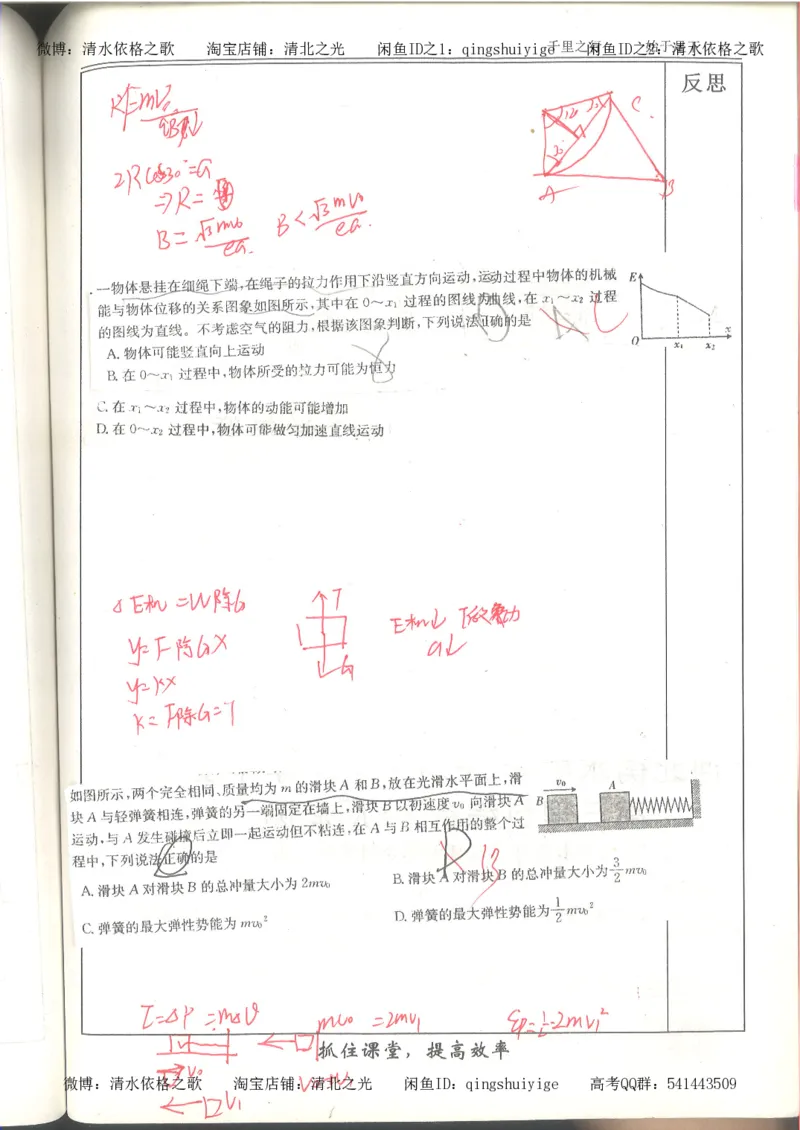 微博：清水依格之歌 淘宝店铺：清北之光 闲鱼ID之1：qingshuiyige 闲鱼ID之2：清水依格之歌
反思
2Rcos30°=a
⇒R=
B=√3mv₀/ea
B<√3mv₀/ea.
C
A
B
一物体悬挂在细绳下端,在绳子的拉力作用下沿竖直方向运动,运动过程中物体的机械
能与物体位移的关系图象如图所示,其中在 0～x₁ 过程的图线为曲线,在 x₁～x₂ 过程
的图线为直线。不考虑空气的阻力,根据该图象判断,下列说法正确的是
E
O x₁ x₂ x
A. 物体可能竖直向上运动
B. 在 0～x₁ 过程中,物体所受的拉力可能为恒力
C. 在 x₁～x₂ 过程中,物体的动能可能增加
D. 在 0～x₂ 过程中,物体可能做匀加速直线运动
ΔE机=W除G
y=F除Gx
y=kx
k=F除G=T
T
G
E机↓
a↓
如图所示,两个完全相同、质量均为 m 的滑块 A 和 B,放在光滑水平面上,滑
块 A 与轻弹簧相连,弹簧的另一端固定在墙上,滑块 B 以初速度 v₀ 向滑块 A
运动,与 A 发生碰撞后立即一起运动但不粘连,在 A 与 B 相互作用的整个过
程中,下列说法正确的是
v₀
B
A
A. 滑块 A 对滑块 B 的总冲量大小为 2mv₀
B. 滑块 A 对滑块 B 的总冲量大小为 3/2 mv₀
C. 弹簧的最大弹性势能为 mv₀²
D. 弹簧的最大弹性势能为 1/2 mv₀²
I=ΔP=mΔV
mv₀=2mv₁
Ep=1/2·2mv₁²
v₀
v₁
抓住课堂，提高效率
微博：清水依格之歌 淘宝店铺：清北之光 闲鱼ID：qingshuiyige 高考QQ群：541443509